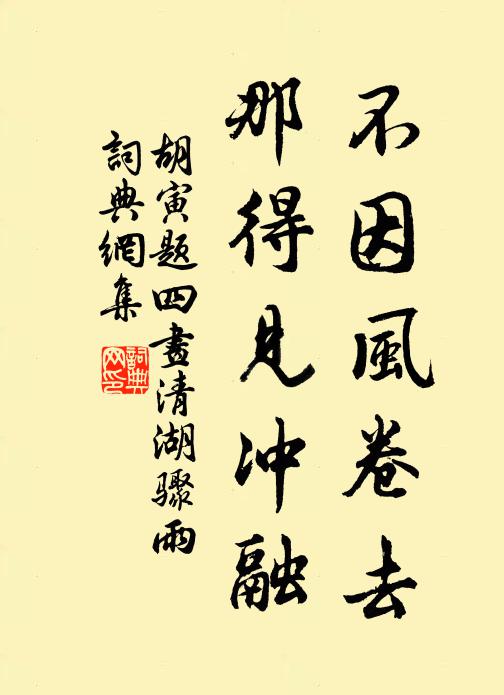 不因風卷去
那得見沖融
胡寅題四畫清湖驟雨
詞典網集
詞典网印